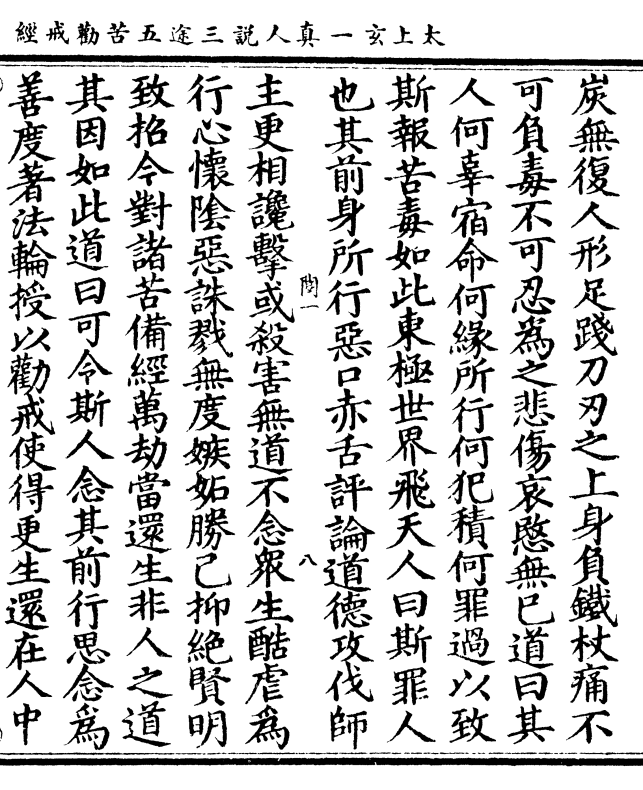 太上玄一真人説三途五苦勸戒經
炭無復人形足踐刀刃之上身負鐵杖痛不
可負毒不可忍爲之悲傷哀愍無已道曰其
人何辜宿命何緣所行何犯積何罪過以致
斯報苦毒如此東極世界飛天人曰斯罪人
也其前身所行惡口赤舌評論道德攻伐師
主更相讒擊或殺害無道不念衆生酷虐爲
行心懷陰惡誅戮無度嫉妬勝己抑絶賢明
致招今對諸苦備經萬劫當還生非人之道
其因如此道曰可令斯人念其前行思念爲
善度著法輪授以勸戒使得更生還在人中
八